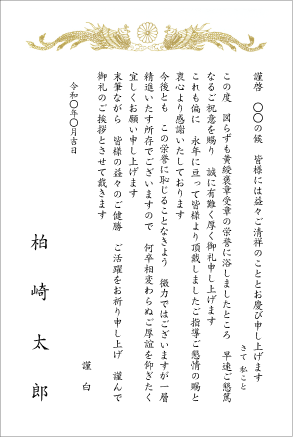 謹啓　〇〇の候　皆様には益々ご清祥のこととお慶び申し上げます
さて 私こと
この度　図らずも黄綬褒章受章の栄誉に浴しましたところ　早速ご懇篤
なるご祝意を賜り　誠に有難く厚く御礼申し上げます
これも偏に　永年に亘って皆様より頂戴しましたご指導ご懇情の賜と
衷心より感謝いたしております
今後とも　この栄誉に恥じることなきよう　微力ではございますが一層
精進いたす所存でございますので　何卒相変わらぬご厚誼を仰ぎたく
宜しくお願い申し上げます
末筆ながら　皆様の益々のご健勝　ご活躍をお祈り申し上げ　謹んで
御礼のご挨拶とさせて戴きます
謹白
令和〇年〇月吉日
柏崎太郎